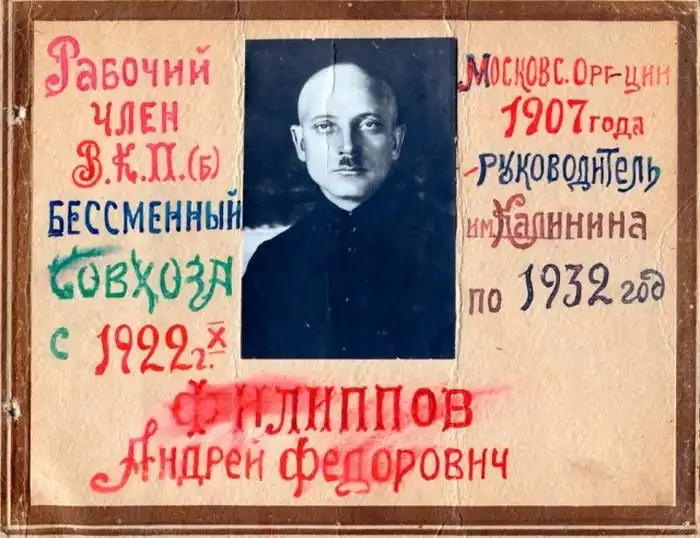 Рабочий
член
В.К.П.(б)
БЕССМЕННЫЙ
Совхоза
с 1922 г. X
Московс. Орг-ции
1907 года
-руководитель
им. Калинина
по 1932 год
ФИЛИППОВ
Андрей Федорович